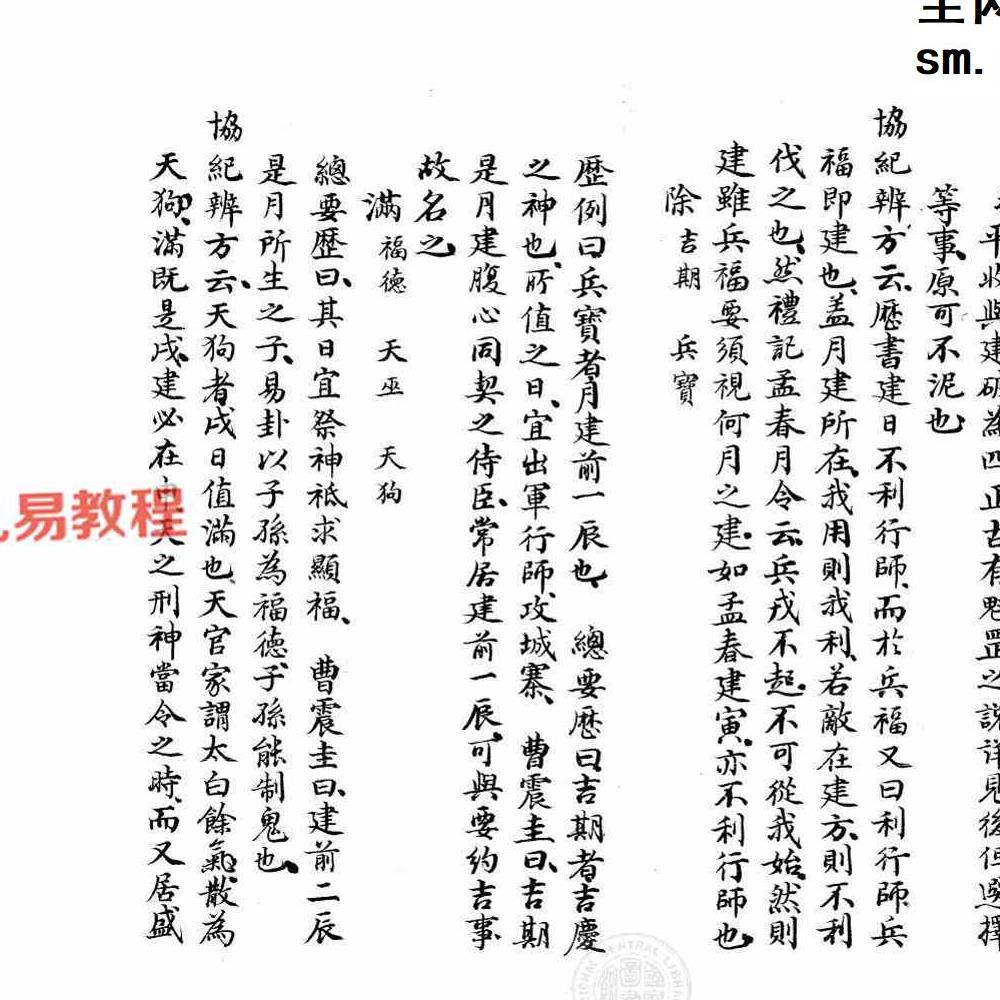 平收與建破為四正古有魁罡之說詳見後但選擇
等事原可不泥也
協紀辨方云歷書建日不利行師而於兵福又曰利行師兵
福即建也蓋月建所在我用則我利若敵在建方則不利
伐之也然禮記孟春月令云兵戎不起不可從我始然則
建雖兵福要須視何月之建如孟春建寅亦不利行師也
除 吉期 兵寶
歷例曰兵寶者月建前一辰也 總要歷曰吉期者吉慶
之神也所值之日宜出軍行師攻城寨 曹震圭曰吉期
是月建腹心同契之侍臣常居建前一辰可與要約吉事
故名之
滿 福德 天巫 天狗
總要歷曰其日宜祭神祗求顯福 曹震圭曰建前二辰
是月所生之子易卦以子孫為福德子孫能制鬼也
協紀辨方云天狗者戌日值滿也天官家謂太白餘氣散為
天狗滿既是戌建必在申天之刑神當令之時而又居盛
易教程
sm.